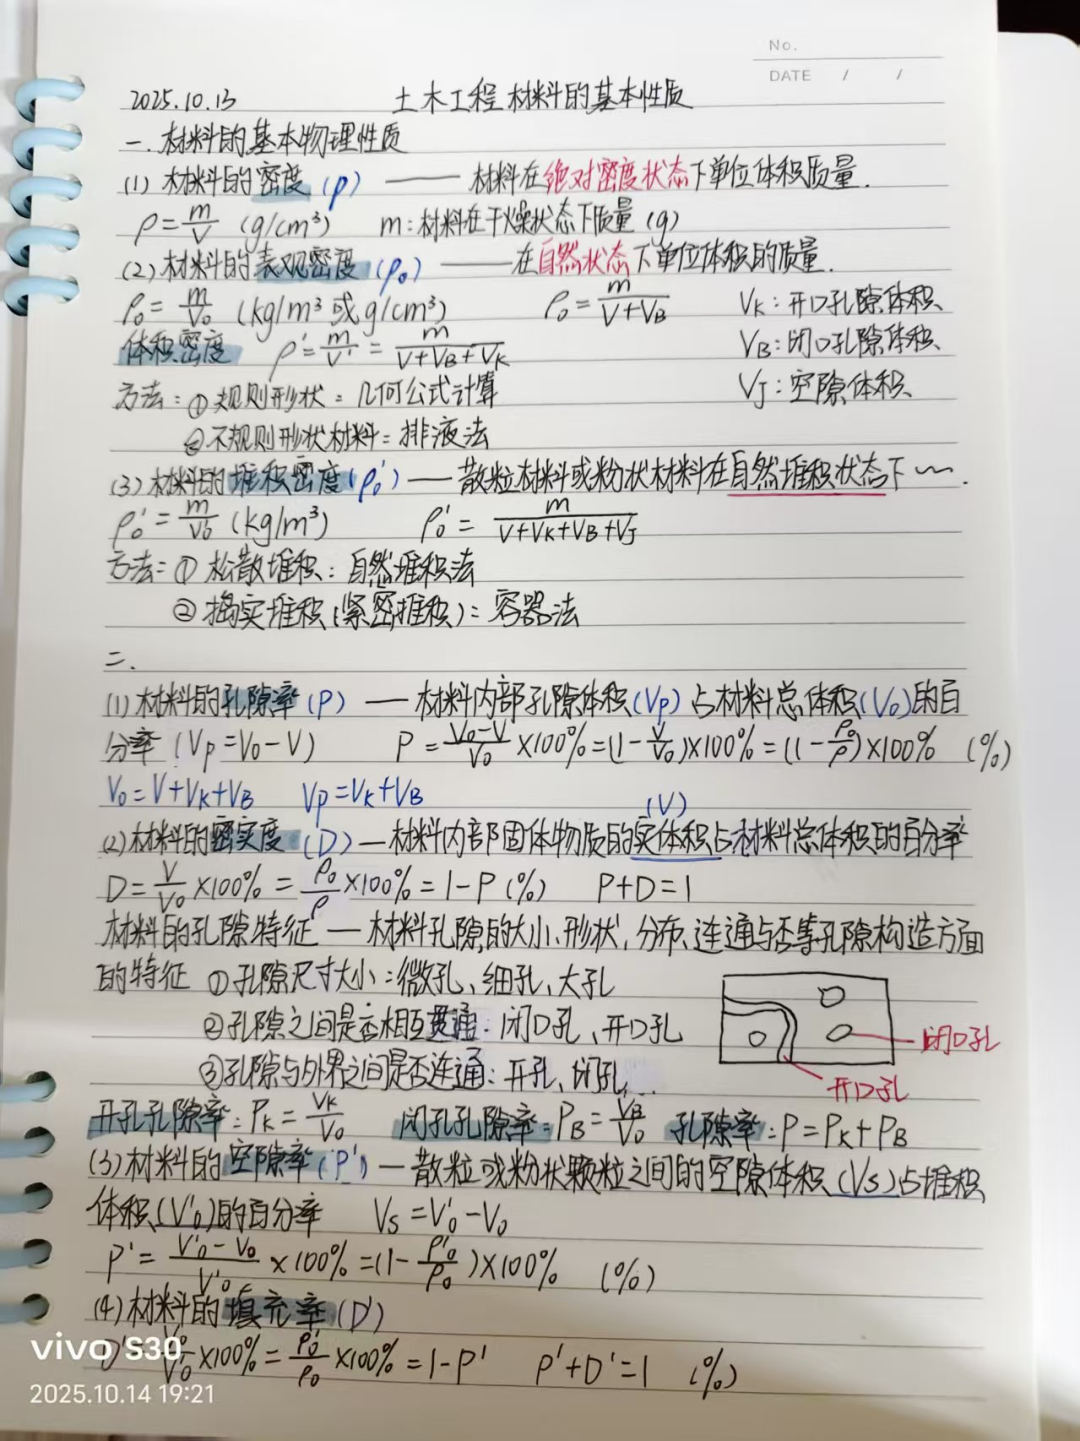 No.
DATE / /
2025.10.13 土木工程材料的基本性质
一.材料的基本物理性质
(1) 材料的密度(ρ) —— 材料在绝对密度状态下单位体积质量.
ρ=m/V (g/cm³) m:材料在干燥状态下质量(g)
(2)材料的表观密度(ρ₀) ——在自然状态下单位体积的质量.
ρ₀=m/V₀ (kg/m³或g/cm³) ρ₀=m/(V+VB) VK:开口孔隙体积
体积密度 ρ'=m/V'=m/(V+VB+VK) VB:闭口孔隙体积
方法:①规则形状:几何公式计算 VJ:空隙体积
②不规则形状材料:排液法
(3)材料的堆积密度(ρ₀')——散粒材料或粉状材料在自然堆积状态下~~.
ρ₀'=m/V₀' (kg/m³) ρ₀'=m/(V+VK+VB+VJ)
方法:①松散堆积:自然堆积法
②捣实堆积(紧密堆积):容器法
二.
(1)材料的孔隙率(P) —材料内部孔隙体积(Vp)占材料总体积(V₀)的百
分率(Vp=V₀-V) P=(V₀-V)/V₀×100%=(1-V/V₀)×100%=(1-ρ₀/ρ)×100% (%)
V₀=V+VK+VB Vp=VK+VB (V)
(2)材料的密实度(D)—材料内部固体物质的实体积占材料总体积的百分率
D=V/V₀×100%=ρ₀/ρ×100%=1-P(%) P+D=1
材料的孔隙特征—材料孔隙的大小、形状,分布、连通与否等孔隙构造方面
的特征 ①孔隙尺寸大小:微孔、细孔、大孔
②孔隙之间是否相互贯通:闭口孔、开口孔
闭口孔
③孔隙与外界之间是否连通:开孔、闭孔
开口孔
开孔孔隙率:PK=VK/V₀ 闭孔孔隙率:PB=VB/V₀ 孔隙率:P=PK+PB
(3)材料的空隙率(P')—散粒或粉状颗粒之间的空隙体积(Vs)占堆积
体积(V'₀)的百分率 Vs=V'₀-V₀
P'=(V'₀-V₀)/V'₀×100%=(1-ρ'₀/ρ₀)×100% (%)
(4)材料的填充率(D')
D' V₀/V₀'×100%=ρ₀'/ρ₀×100%=1-P' P'+D'=1 (%)
vivo S30
2025.10.14 19:21